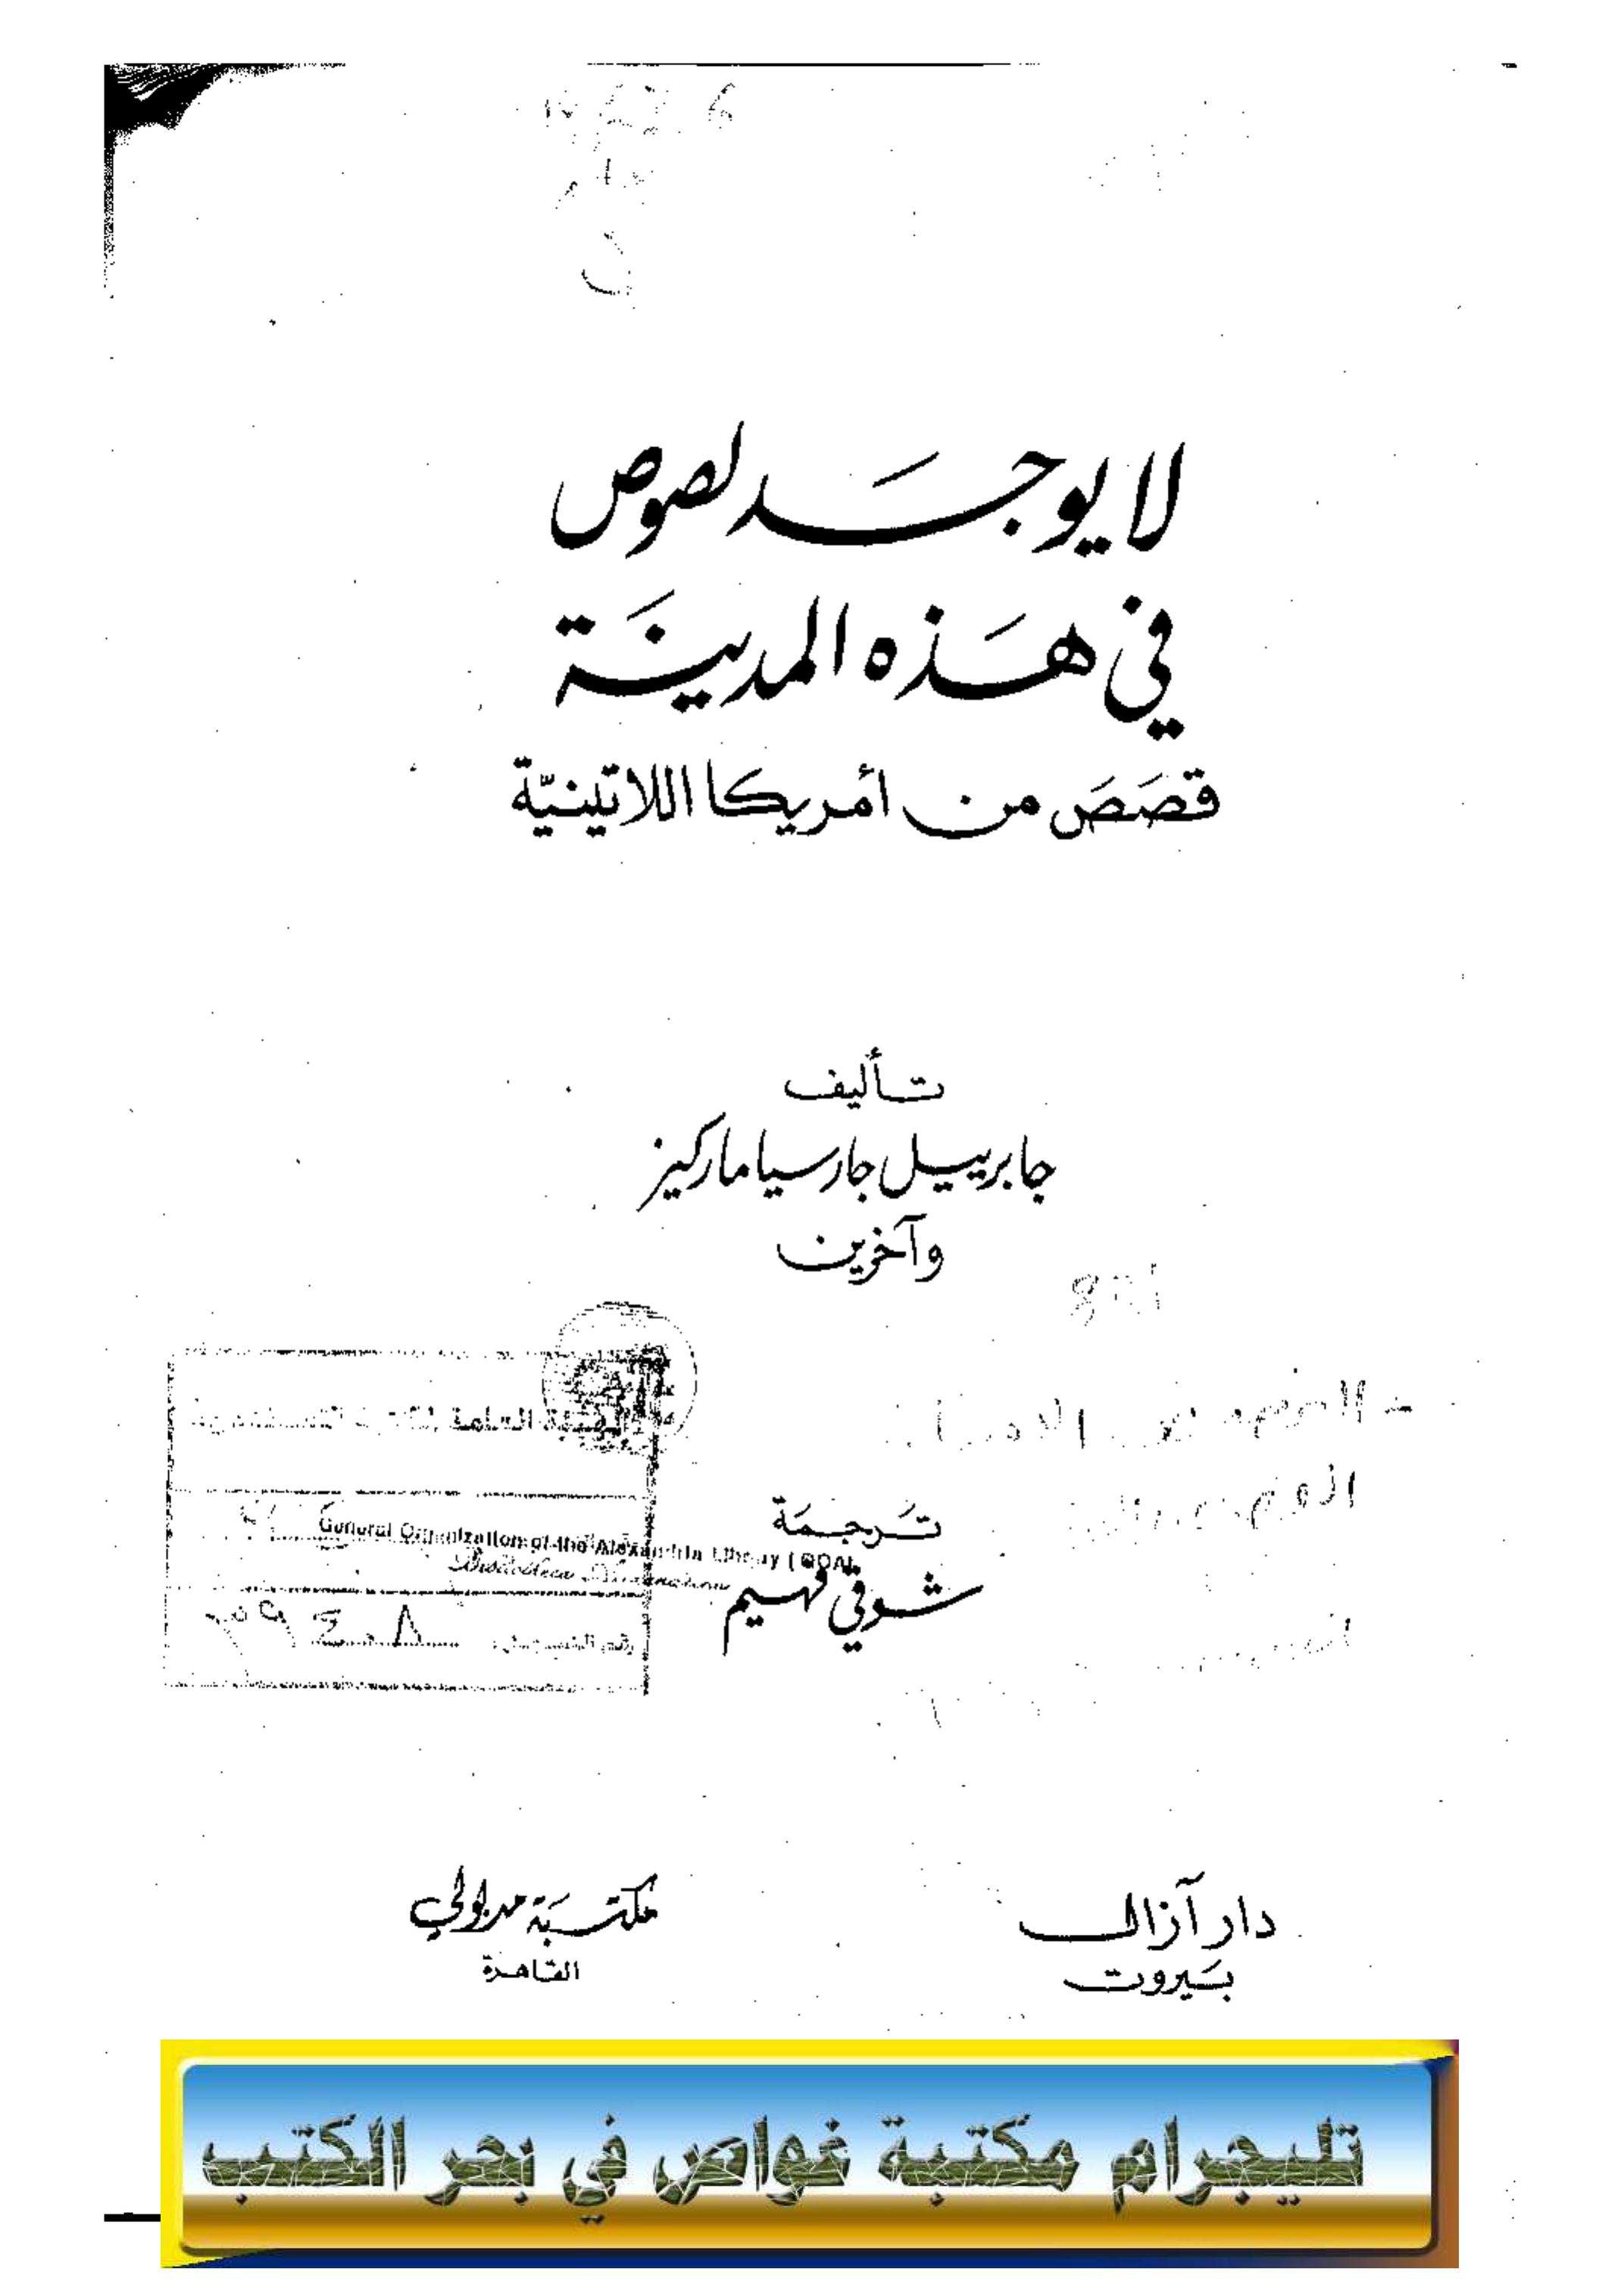 لا يوجَد لصوص
في هَذه المدينَة
قصَصَ من أمريكا اللاتينيّة
تأليف
جابرييل جارسيا ماركيز
وآخرين
العامة
General Organization of the Alexandria Library (GOAL
Bibliotheca Alexandrina
تَرجمَة
شوقي فهيم
رقم التسجيل
دار آزال
بَيروت
مكتبَة مدبولي
القاهرة
تليجرام مكتبة غواص في بحر الكتب